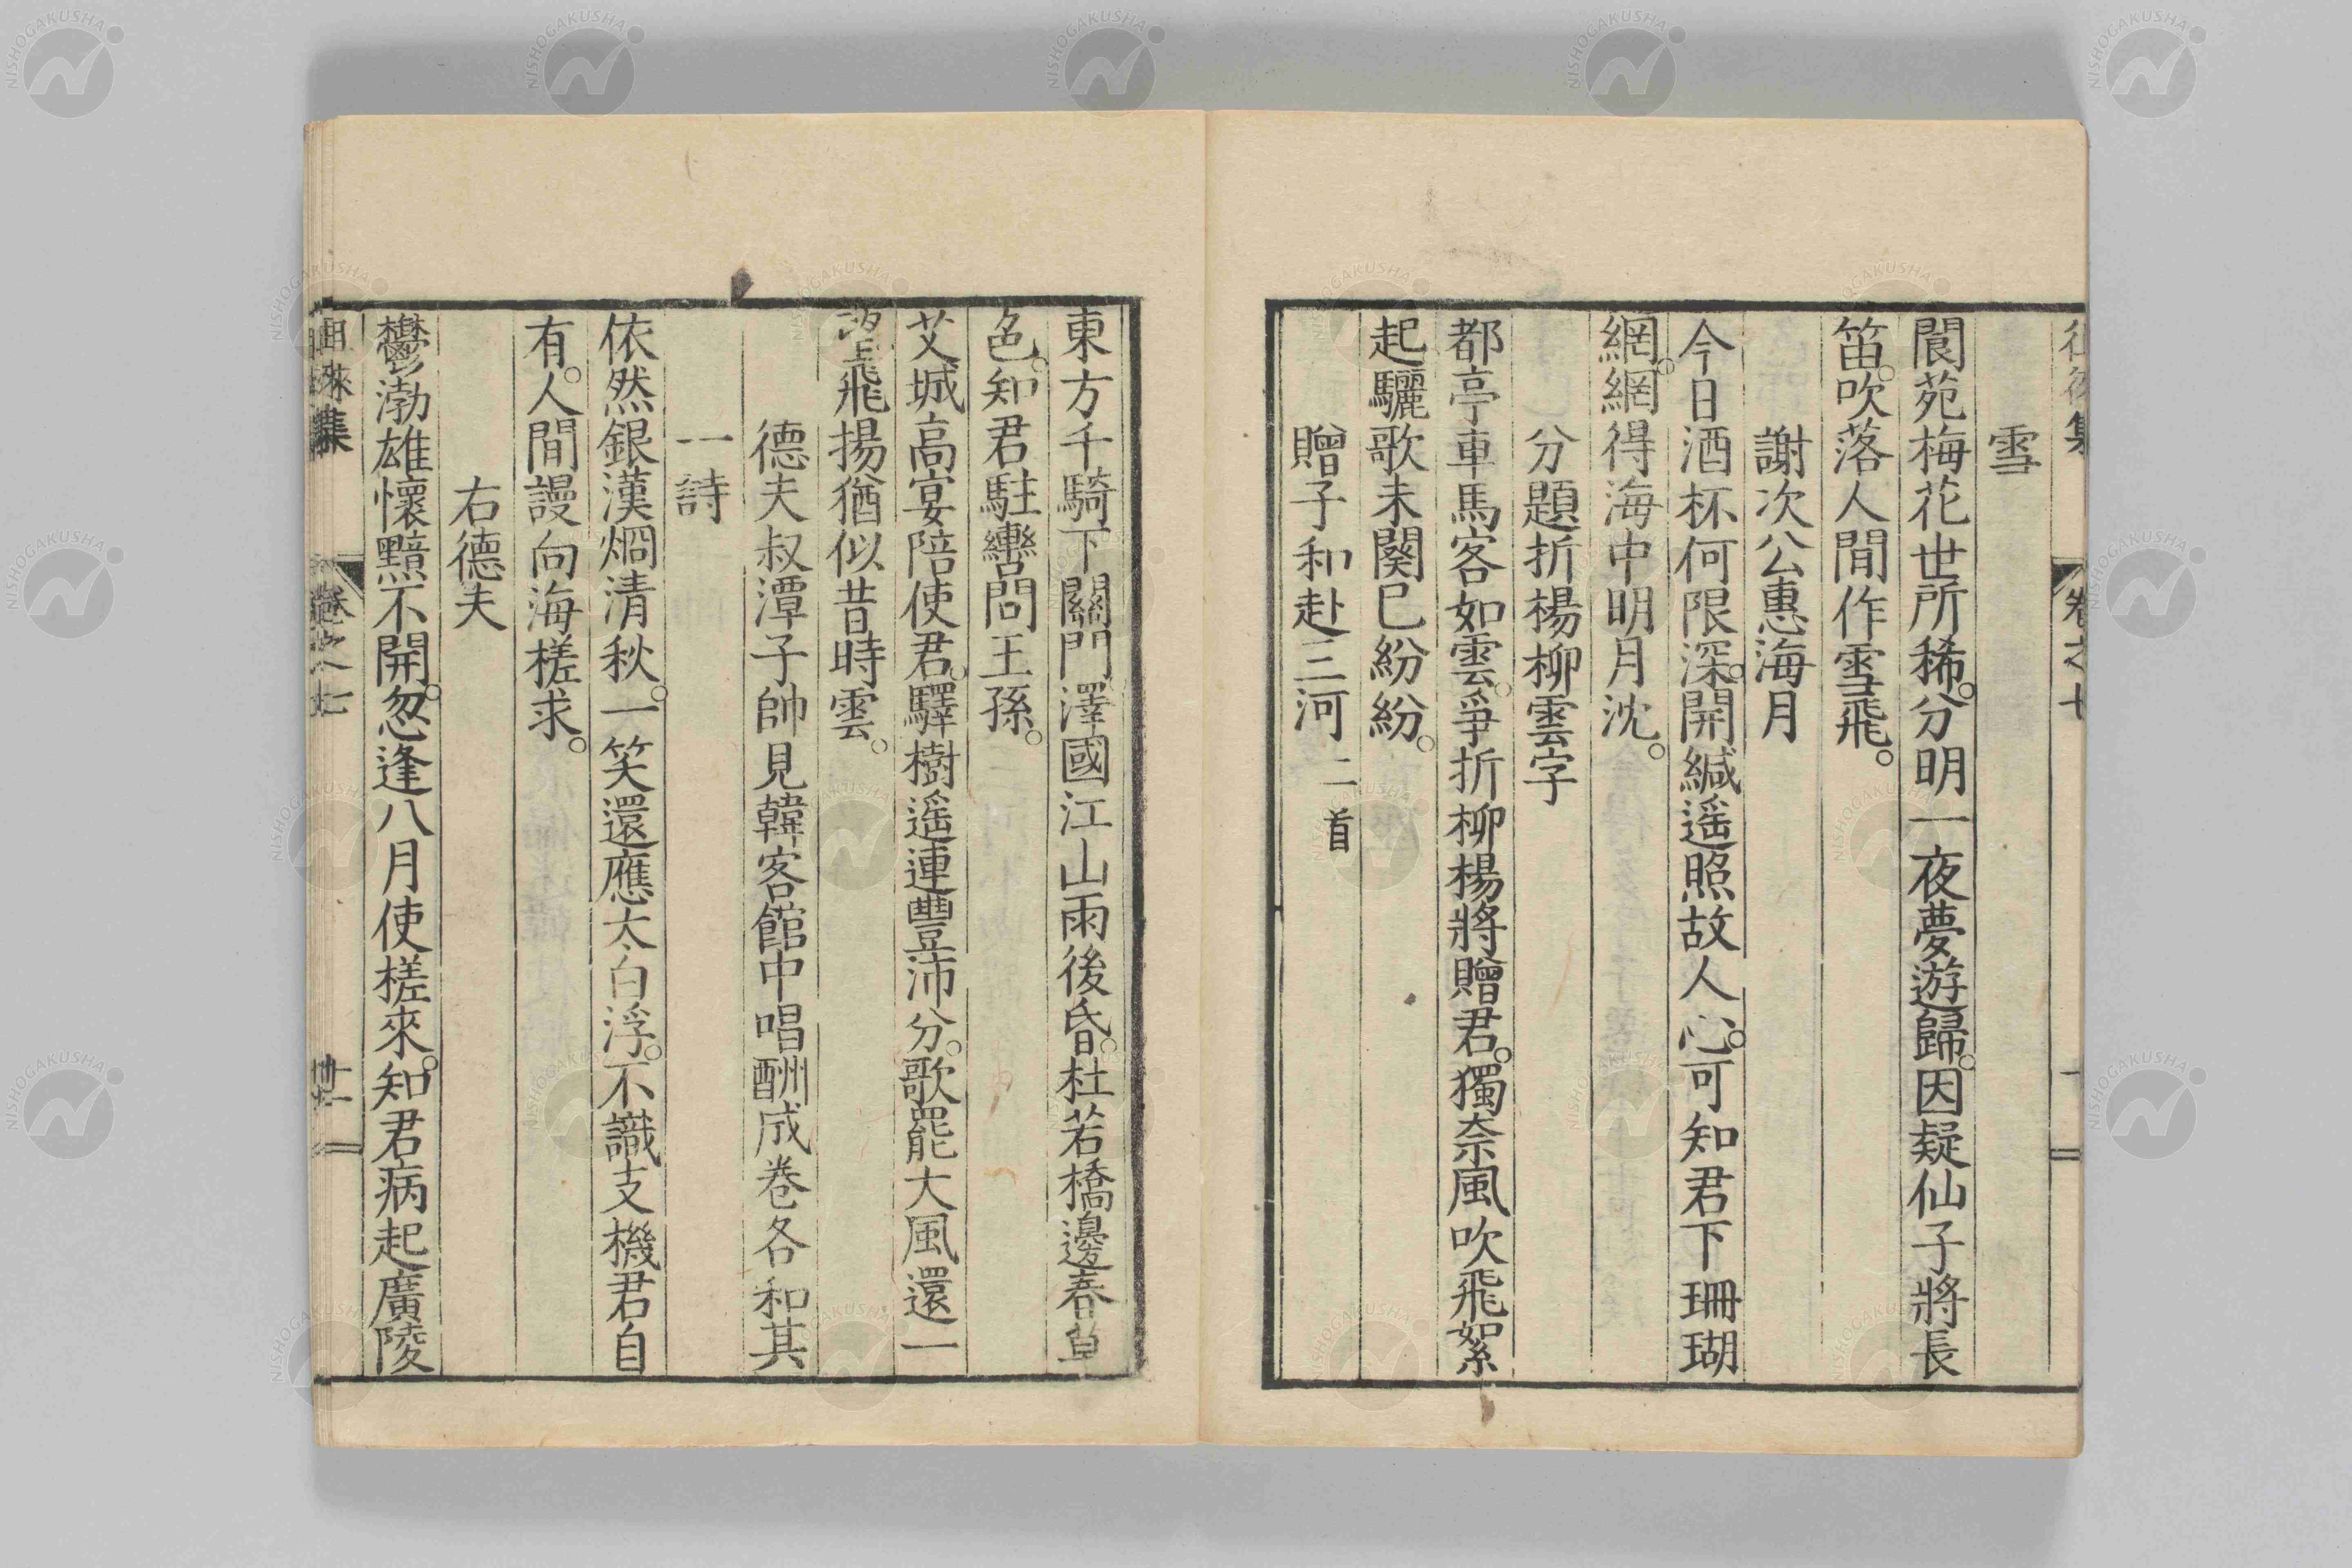 雪
閬苑梅花世所稀。分明一夜夢遊歸。因疑仙子將長
笛。吹落人間作雪飛。
謝次公惠海月
今日酒杯何限深。開緘遥照故人心。可知君下珊瑚
網。網得海中明月沈。
分題折楊柳雲字
都亭車馬客如雲。爭折柳楊將贈君。獨奈風吹飛絮
起驪歌未闋已紛紛。
贈子和赴三河 二首
東方千騎下關門澤國江山雨後昏。杜若橋邊春草
色。知君駐轡問王孫。
艾城高宴陪使君。驛樹遥連豐沛分。歌罷大風還一
望飛揚猶似昔時雲。
德夫叔潭子帥見韓客館中唱酬成卷各和其
一詩
依然銀漢烱清秋。一笑還應太白浮。不識支機君自
有。人間謾向海槎求。
右德夫
鬱渤雄懷黯不開。忽逢八月使槎來。知君病起廣陵
卷之七
NISHOGAKUSHA